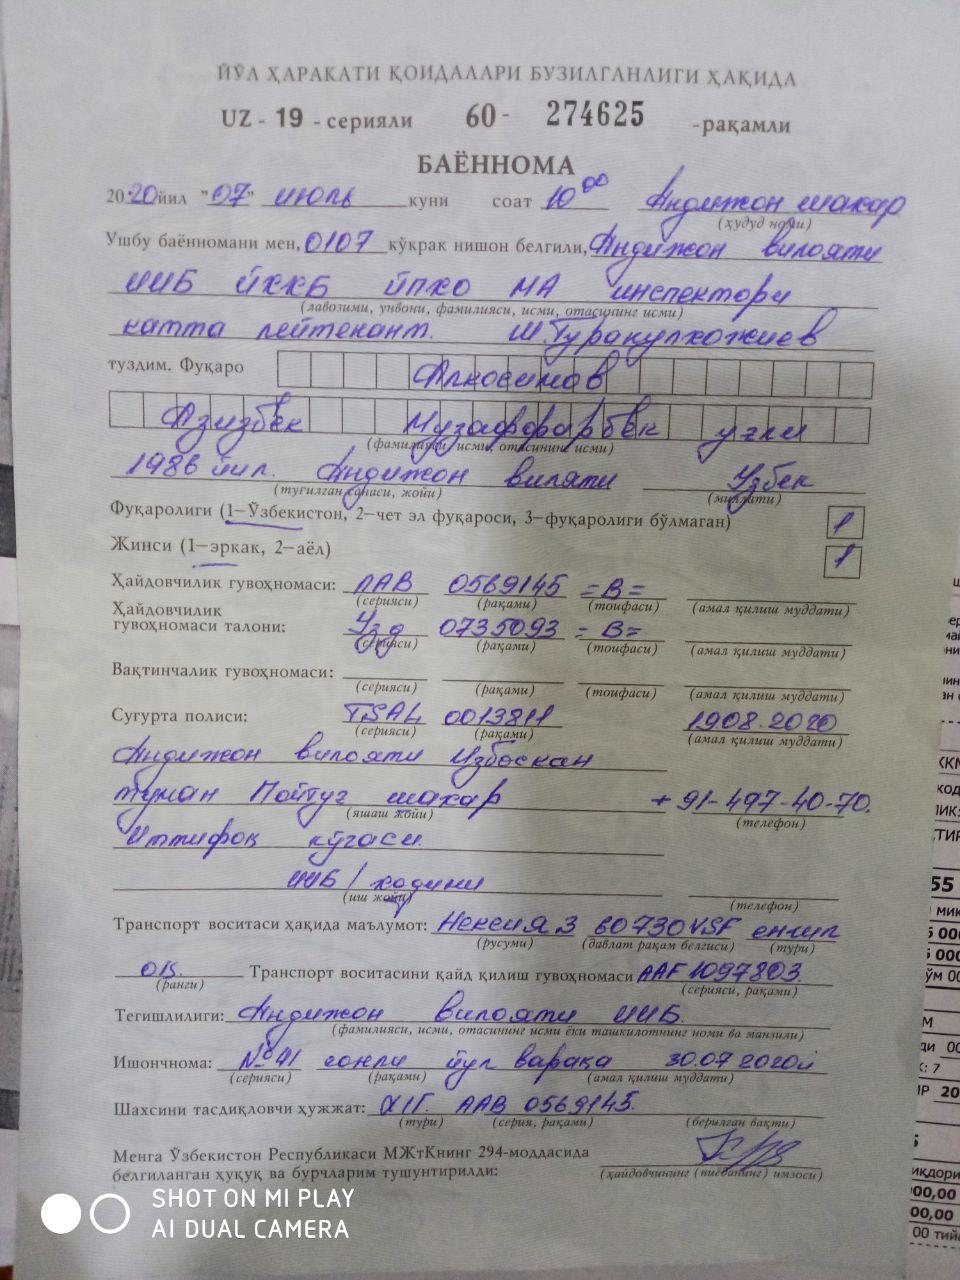 ЙЎЛ ҲАРАКАТИ ҚОИДАЛАРИ БУЗИЛГАНЛИГИ ҲАҚИДА
UZ - 19 - серияли 60- 274625 -рақамли
БАЁННОМА
2020йил "07" июль куни соат 10 00 Андижон шахар
(ҳудуд номи)
Ушбу баённомани мен, 0107 кўкрак нишон белгили, Андижон вилояти
ИИБ ЙХХБ ЙПХО МА инспектори
(лавозими, унвони, фамилияси, исми, отасининг исми)
катта лейтенант. Ш.Туракулхожиев
туздим. Фуқаро Алкосимов
Азизбек Музаффарбек угли
(фамилияси, исми, отасининг исми)
1986 йил. Андижон вилояти Узбек
(туғилган санаси, жойи) (миллати)
Фуқаролиги (1–Ўзбекистон, 2–чет эл фуқароси, 3–фуқаролиги бўлмаган) 1
Жинси (1–эркак, 2–аёл) 1
Ҳайдовчилик гувоҳномаси: ААВ 0569145 =В=
(серияси) (рақами) (тоифаси) (амал қилиш муддати)
Ҳайдовчилик
гувоҳномаси талони: 0735093 =В=
(серияси) (рақами) (тоифаси) (амал қилиш муддати)
Вақтинчалик гувоҳномаси:
(серияси) (рақами) (тоифаси) (амал қилиш муддати)
Суғурта полиси: TSAL 0013811 1908.2020
(серияси) (рақами) (амал қилиш муддати)
Андижон вилояти Избоскан
туман Пойтуг шахар + 91-497-40-70.
(яшаш жойи) (телефон)
Иттифоқ кўчаси
ИИБ / ходими
(иш жойи) (телефон)
Транспорт воситаси ҳақида маълумот: Нексия 3 60730VSF енгил
(русуми) (давлат рақам белгиси) (тури)
оқ. Транспорт воситасини қайд қилиш гувоҳномаси AAF 1097803.
(ранги) (серияси, рақами)
Тегишлилиги: Андижон вилояти ИИБ.
(фамилияси, исми, отасининг исми ёки ташкилотнинг номи ва манзили)
Ишончнома: №41 сонли йул варақа 30.07 2020й
(серияси) (рақами) (амал қилиш муддати)
Шахсини тасдиқловчи ҳужжат: Х/Г. ААВ 0569145.
(тури) (серия, рақами) (берилган вақти)
Менга Ўзбекистон Республикаси МЖтКнинг 294-моддасида
белгиланган ҳуқуқ ва бурчларим тушунтирилди:
(ҳайдовчининг (пиёданинг) имзоси)
SHOT ON MI PLAY
AI DUAL CAMERA